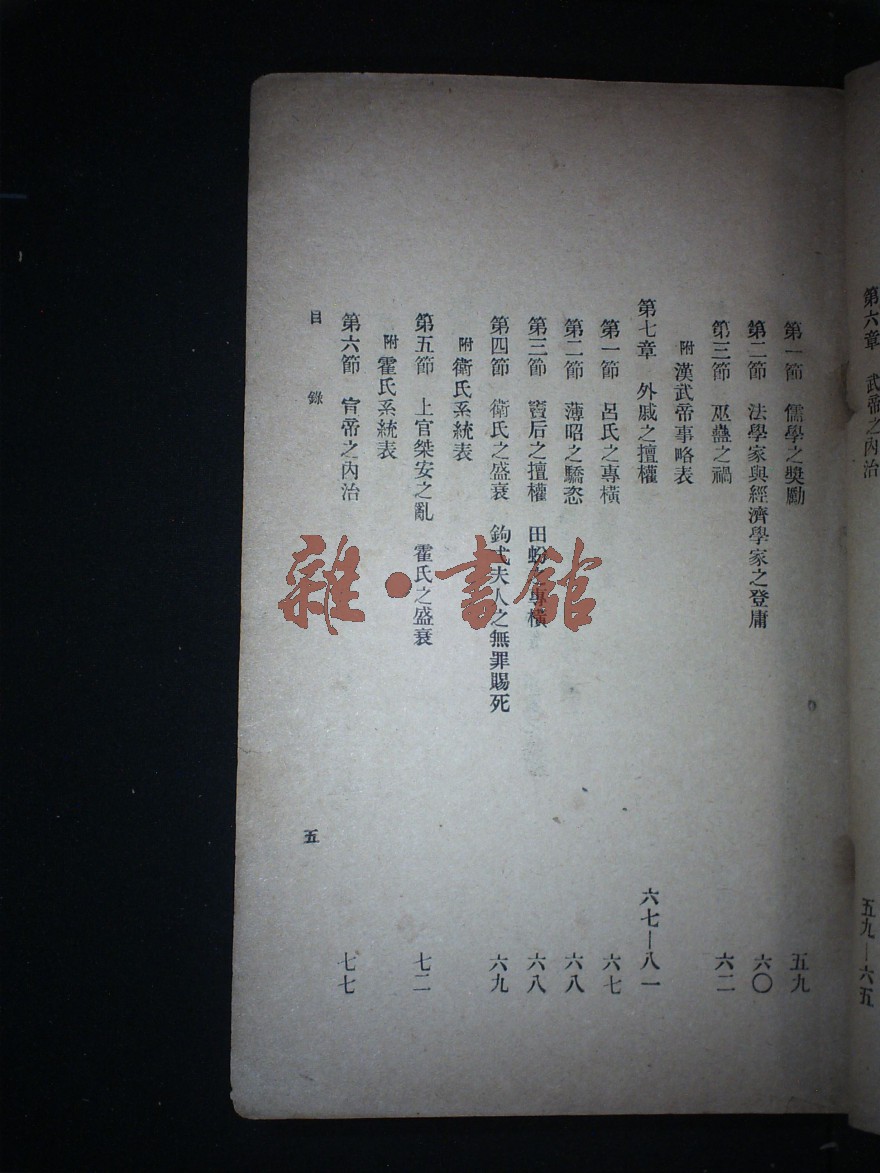 第六章 武帝之內治 五九—六五
第一節 儒學之奬勵 五九
第二節 法學家與經濟學家之登庸 六〇
第三節 巫蠱之禍 六二
附 漢武帝事略表
第七章 外戚之擅權 六七—八一
第一節 呂氏之專橫 六七
第二節 薄昭之驕恣 六八
第三節 竇后之擅權 田蚡之專橫 六八
第四節 衛氏之盛衰 鉤弋夫人之無罪賜死 六九
附 衛氏系統表
第五節 上官桀安之亂 霍氏之盛衰 七二
附 霍氏系統表
第六節 宣帝之內治 七七
目錄 五
雜·書館